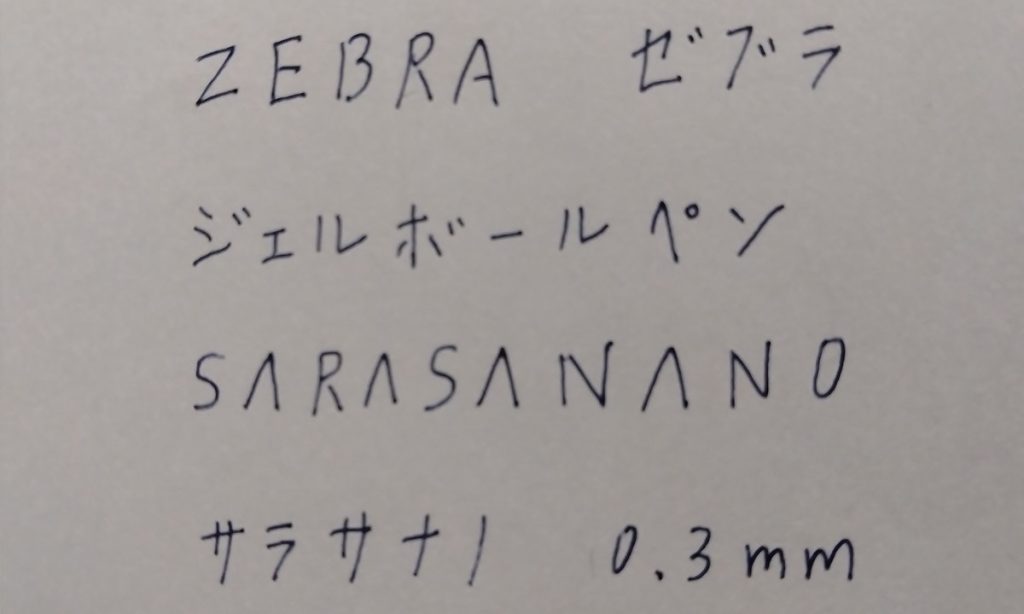 ZEBRA ゼブラ
ジェルボールペン
SARASANANO
サラサナノ 0.3mm